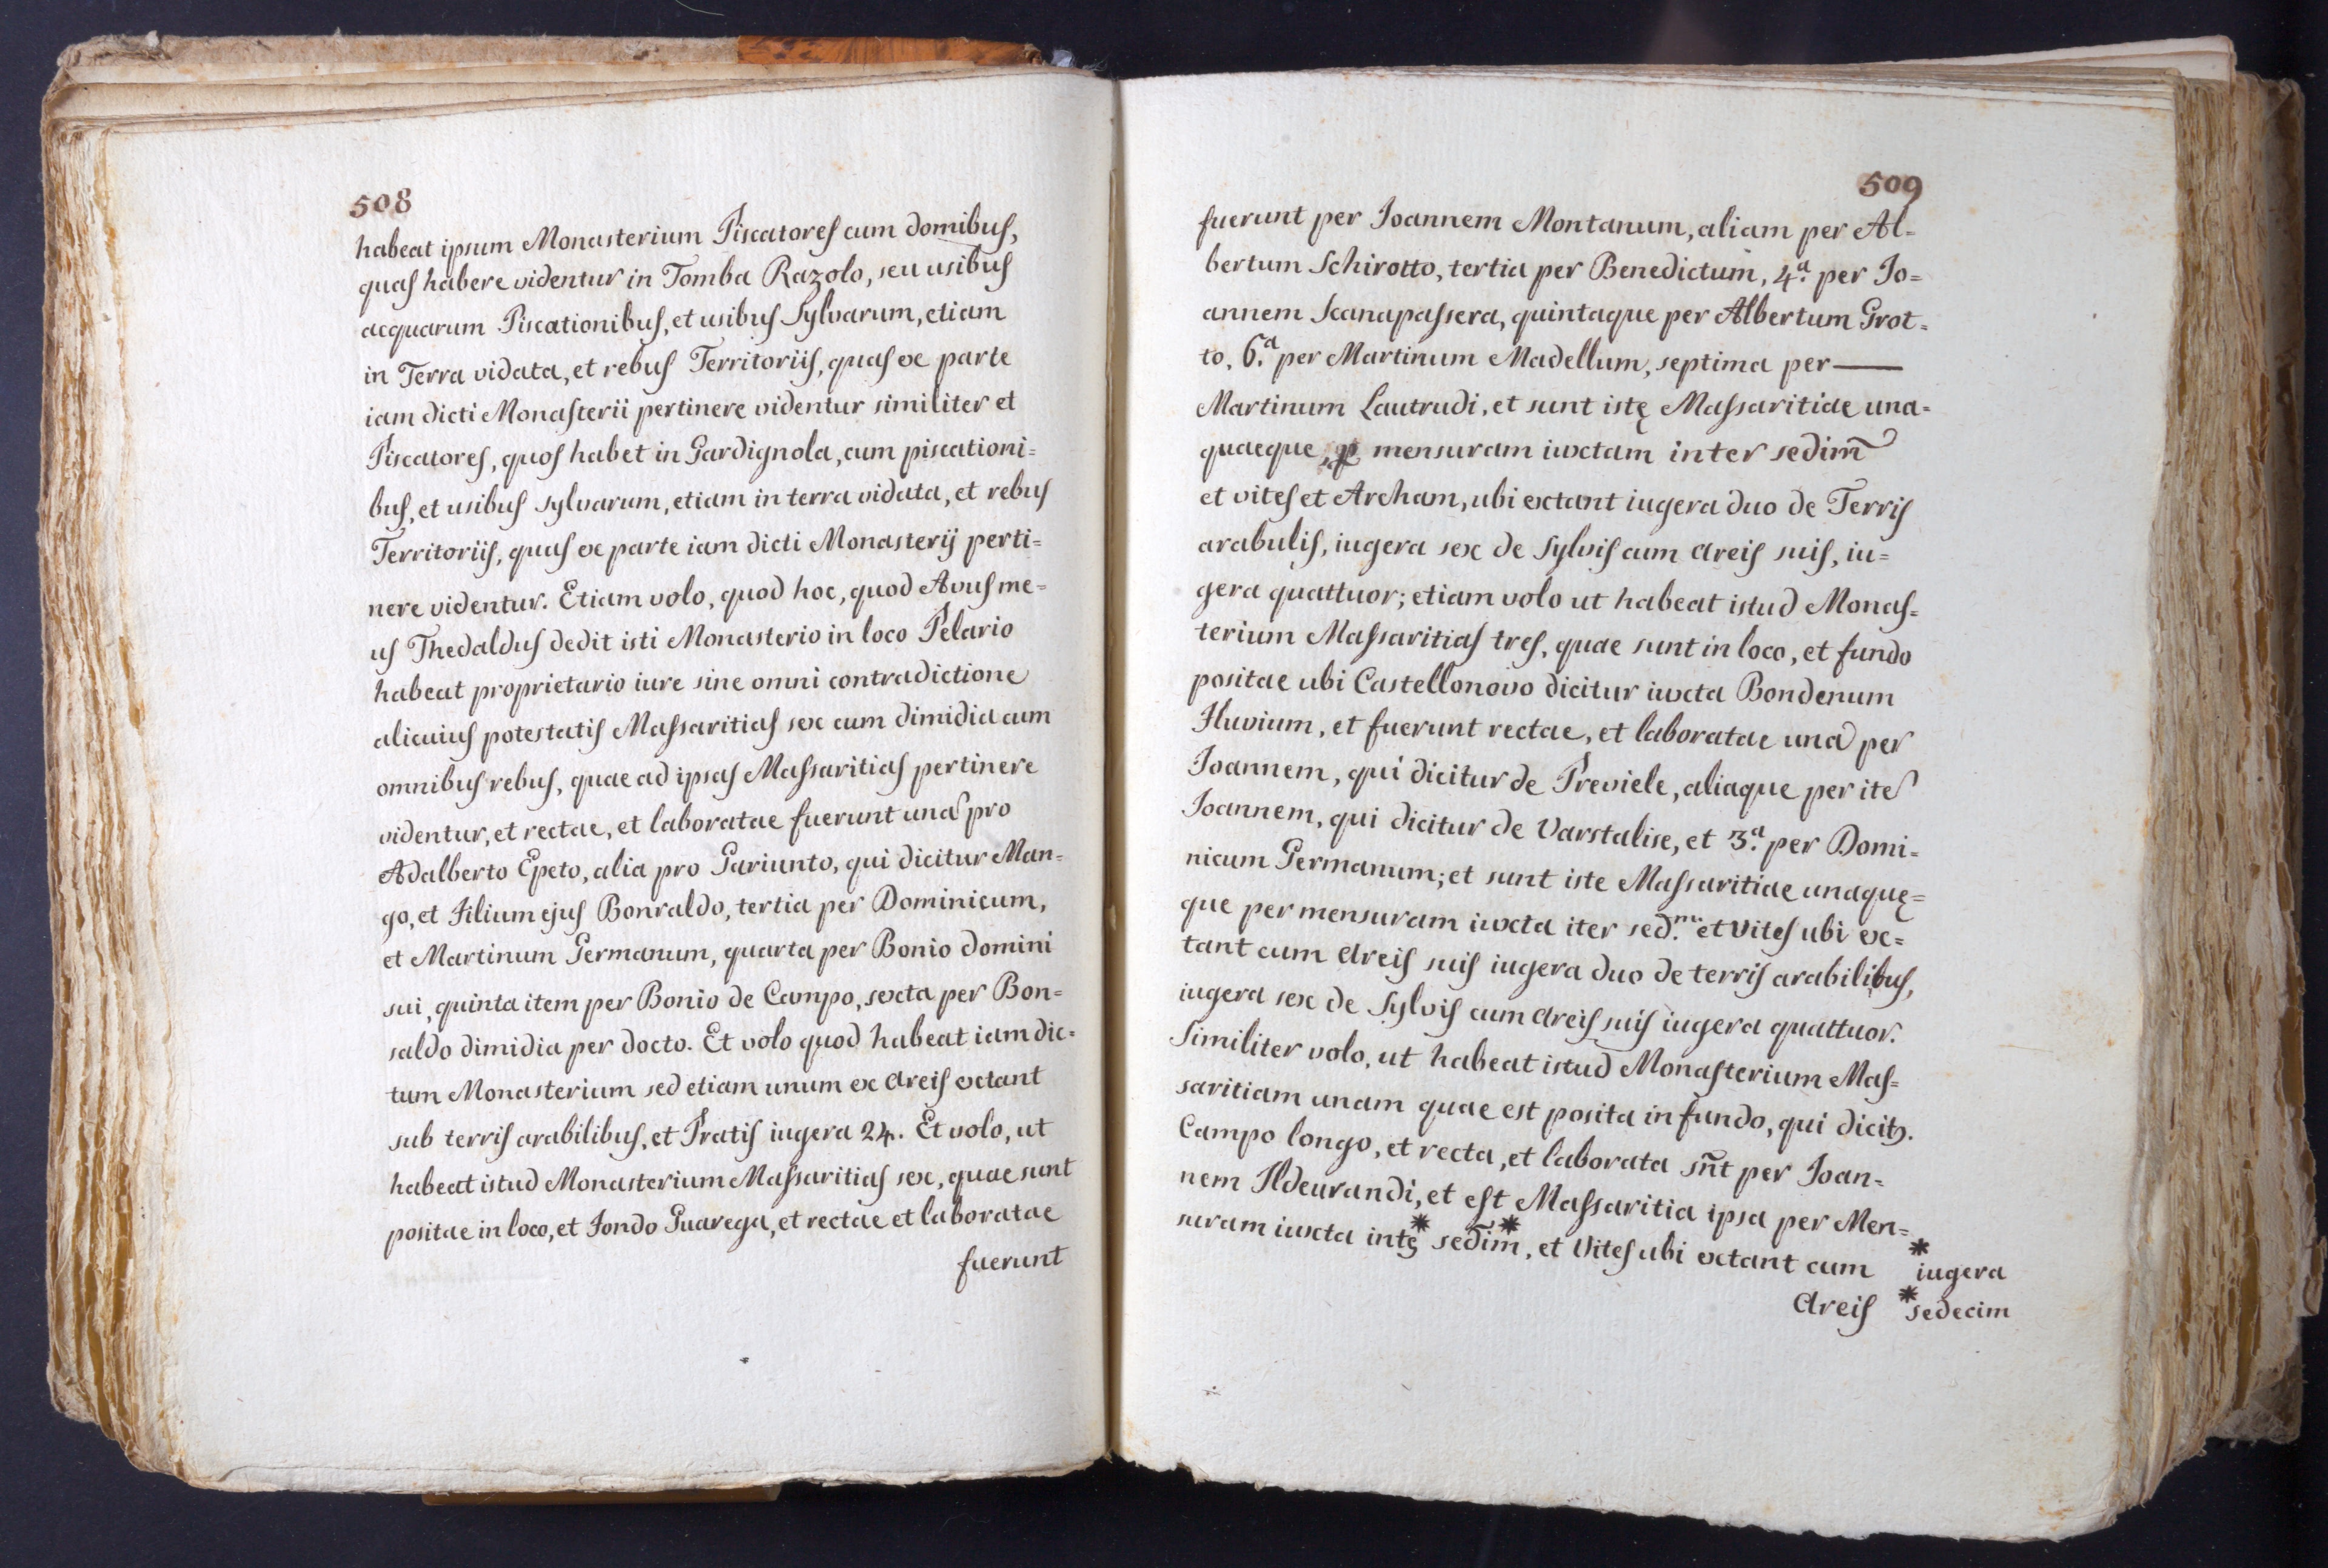 508
habeat ipsum Monasterium Piscatores cum domibus,
quas habere videntur in Tomba Razolo, seu usibus
acquarum Piscationibus, et usibus Sylvarum, etiam
in Terra vidata, et rebus Territoriis, quas ex parte
iam dicti Monasterii pertinere videntur similiter et
Piscatores, quos habet in Gardignola, cum piscationi=
bus, et usibus sylvarum, etiam in terra vidata, et rebus
Territoriis, quas ex parte iam dicti Monasterij perti=
nere videntur. Etiam volo, quod hoc, quod Avus me=
us Thedaldus dedit isti Monasterio in loco Pelario
habeat proprietario iure sine omni contradictione
alicuius potestatis Massaritias sex cum dimidia cum
omnibus rebus, quae ad ipsas Massaritias pertinere
videntur, et rectae, et laboratae fuerunt una pro
Adalberto Epeto, alia pro Gariunto, qui dicitur Man=
go, et Filium ejus Bonraldo, tertia per Dominicum,
et Martinum Germanum, quarta per Bonio domini
sui, quinta item per Bonio de Campo, sexta per Bon=
saldo dimidia per docto. Et volo quod habeat iam dic=
tum Monasterium sed etiam unum ex Areis extant
sub terris arabilibus, et Pratis iugera 24. Et volo, ut
habeat istud Monasterium Massaritias sex, quae sunt
positae in loco, et Fondo Guarega, et rectae et laboratae
fuerunt
509
fuerunt per Ioannem Montanum, aliam per Al=
bertum Schirotto, tertia per Benedictum, 4.ª per Io=
annem Scanapassera, quintaque per Albertum Grot=
to, 6.ª per Martinum Madellum, septima per —
Martinum Lautrudi, et sunt istę Massaritiae una=
quaeque, ꝑ mensuram iuxtam inter sedim̃
et vites et Archam, ubi extant iugera duo de Terris
arabulis, iugera sex de Sylvis cum Areis suis, iu=
gera quattuor; etiam volo ut habeat istud Monas=
terium Massaritias tres, quae sunt in loco, et fundo
positae ubi Castellonovo dicitur iuxta Bondenum
Fluvium, et fuerunt rectae, et laboratae una per
Ioannem, qui dicitur de Previele, aliaque per ite
Ioannem, qui dicitur de Varstalise, et 3.ª per Domi=
nicum Germanum; et sunt iste Massaritiae unaquę=
que per mensuram iuxta iter sed.m et Vites ubi ex=
tant cum Areis suis iugera duo de terris arabilibus,
iugera sex de Sylvis cum Areis suis iugera quattuor.
Similiter volo, ut habeat istud Monasterium Mas=
saritiam unam quae est posita in fundo, qui dicitꝫ.
Campo longo, et recta, et laborata sñt per Ioan=
nem Ildeurandi, et est Massaritia ipsa per Men=
suram iuxta intꝫ * sedim̃ *, et Vites ubi extant cum
Areis
* iugera
* sedecim